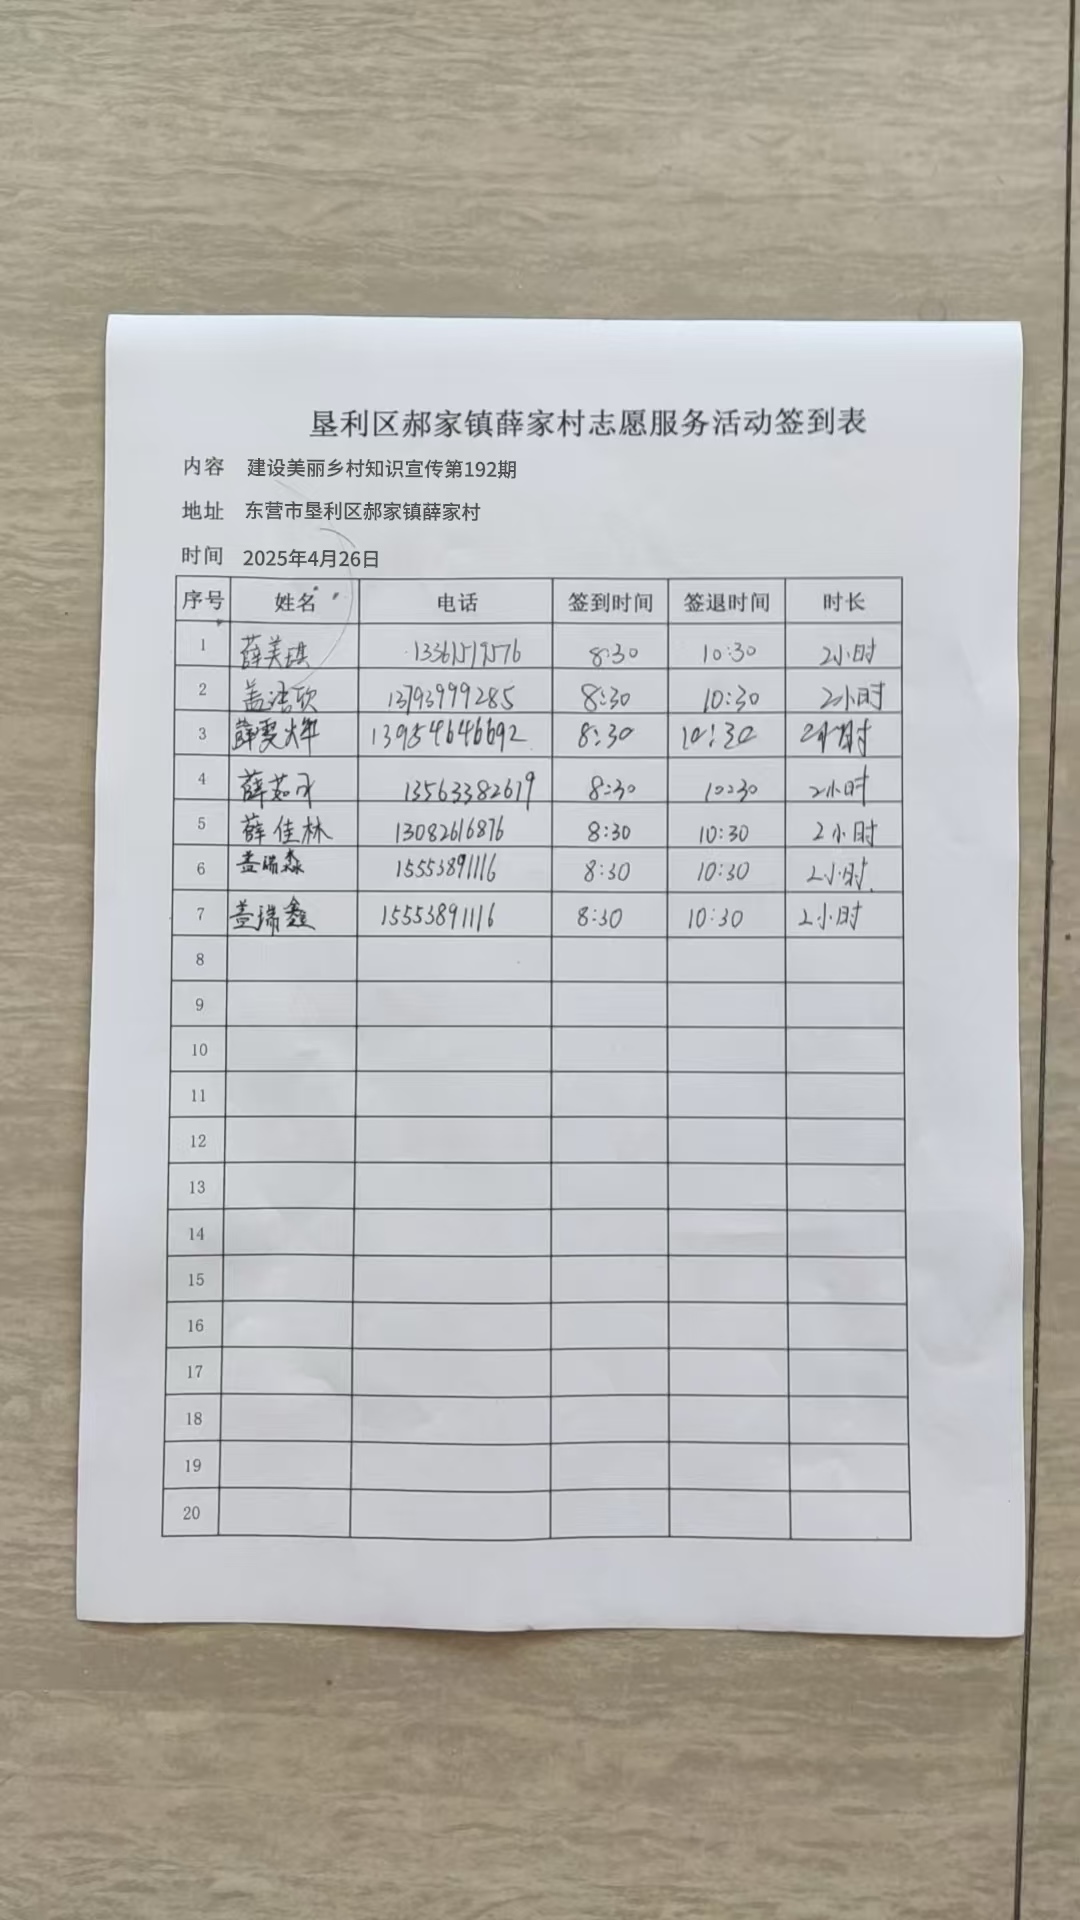 垦利区郝家镇薛家村志愿服务活动签到表
内容 建设美丽乡村知识宣传第192期
地址 东营市垦利区郝家镇薛家村
时间 2025年4月26日
序号 姓名 电话 签到时间 签退时间 时长
1 薛美琪 13361519576 8:30 10:30 2小时
2 盖浩欣 13793999285 8:30 10:30 2小时
3 薛雯 13954646692 8:30 10:30 2小时
4 薛茹 13563382619 8:30 10:30 2小时
5 薛佳林 13082616876 8:30 10:30 2小时
6 盖瑞淼 15553891116 8:30 10:30 2小时
7 盖瑞鑫 15553891116 8:30 10:30 2小时
8
9
10
11
12
13
14
15
16
17
18
19
20